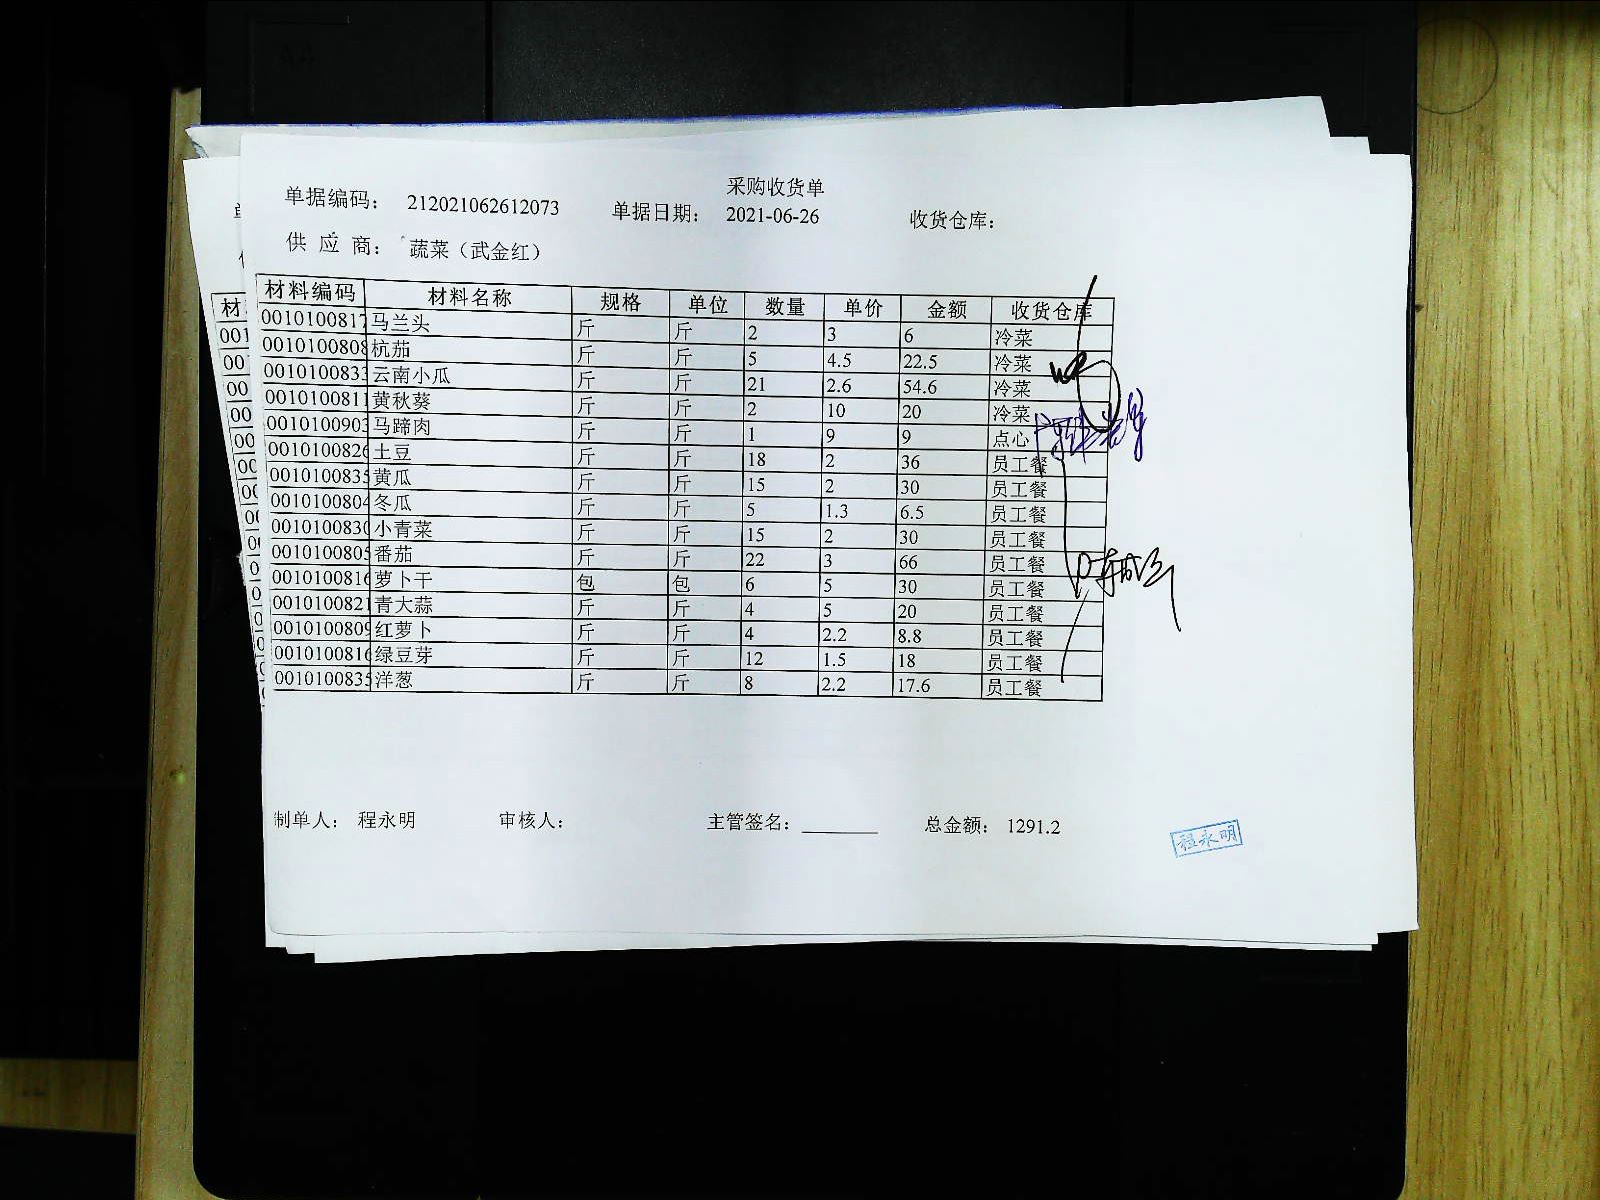 采购收货单
单据编码： 212021062612073 单据日期： 2021-06-26 收货仓库：
供 应 商： 蔬菜（武金红）
材料编码 材料名称 规格 单位 数量 单价 金额 收货仓库
0010100817 马兰头 斤 斤 2 3 6 冷菜
0010100808 杭茄 斤 斤 5 4.5 22.5 冷菜
0010100833 云南小瓜 斤 斤 21 2.6 54.6 冷菜
0010100811 黄秋葵 斤 斤 2 10 20 冷菜
0010100903 马蹄肉 斤 斤 1 9 9 点心
0010100826 土豆 斤 斤 18 2 36 员工餐
0010100835 黄瓜 斤 斤 15 2 30 员工餐
0010100804 冬瓜 斤 斤 5 1.3 6.5 员工餐
0010100830 小青菜 斤 斤 15 2 30 员工餐
0010100805 番茄 斤 斤 22 3 66 员工餐
0010100816 萝卜干 包 包 6 5 30 员工餐
0010100821 青大蒜 斤 斤 4 5 20 员工餐
0010100809 红萝卜 斤 斤 4 2.2 8.8 员工餐
0010100816 绿豆芽 斤 斤 12 1.5 18 员工餐
0010100835 洋葱 斤 斤 8 2.2 17.6 员工餐
制单人： 程永明 审核人： 主管签名： 总金额： 1291.2
程永明